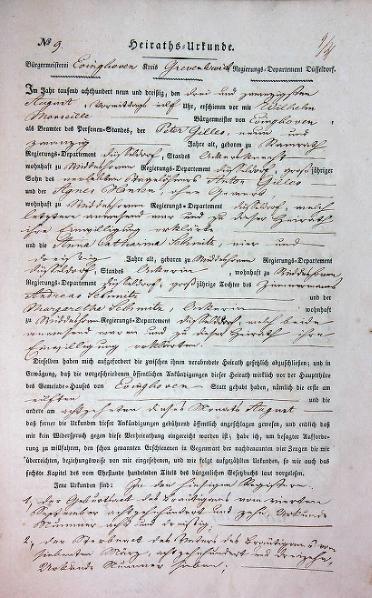 № 9 Heiraths-Urkunde. 9/4
Bürgermeisterei Evinghoven Kreis Grevenbroich Regierungs-Departement Düsseldorf.
Im Jahr tausend achthundert neun und dreißig, den drei und zwanzigsten
August, Vormittags elf Uhr, erschien vor mir Wilhelm
Bürgermeister von Evinghoven
als Beamten des Personen-Standes, der Peter Gilles, neun und
zwanzig Jahre alt, geboren zu
Regierungs-Departement Düsseldorf, Standes Ackerknecht
wohnhaft zu Widdeshoven Regierungs-Departement Düsseldorf, großjähriger
Sohn des verstorbenen Tagelöhners Anton Gilles
und der Agnes ohne Gewerb
wohnhaft zu Widdeshoven Regierungs-Departement Düsseldorf, welch
letztere anwesend war und zu dieser Heirath
ihre Einwilligung erklärte
und die Anna Catharina Schmitz, vier und
dreißig Jahre alt, geboren zu Widdeshoven Regierungs-Departement
Düsseldorf, Standes Ackerin, wohnhaft zu Widdeshoven
Regierungs-Departement Düsseldorf, großjährige Tochter des Zimmermanns
Andreas Schmitz und der
Margaretha Schmitz, Ackerin wohnhaft
zu Widdeshoven Regierungs-Departement Düsseldorf, welch beide
anwesend waren und zu dieser Heirath ihre
Einwilligung erklärten.
Dieselben haben mich aufgefordert die zwischen ihnen verabredete Heirath gesetzlich abzuschließen; und in
Erwägung, daß die vorgeschriebenen Ankündigungen dieser Heirath wirklich vor der Hauptthüre
des Gemeinde-Hauses von Evinghoven Statt gehabt haben, nämlich die erste am
elften und die
andere am achtzehnten dieses Monats August
daß ferner die Urkunden dieser Ankündigungen gebührend öffentlich angeschlagen gewesen, und endlich daß
mir kein Widerspruch gegen diese Verheirathung eingereicht worden ist; habe ich, um besagter Aufforderung
zu willfahren, den schon genannten Erschienenen in Gegenwart der nachbenannten vier Zeugen die mir
überreichten, beziehungsweise von mir eingesehenen, und wie folgt aufgezählten Urkunden, so wie auch das
sechste Kapitel des vom Ehestande handelnden Titels des bürgerlichen Gesetzbuchs laut vorgelesen.
Jene Urkunden sind: In den hiesigen Registern.
1, der Geburtsact des Bräutigams vom vierten
September achtzehnhundert und zehn, Urkunde
Nummer acht und dreißig;
2, der Sterbeact des Vaters des Bräutigams vom
siebenten März, achtzehnhundert und dreizehn,
Urkunde Nummer sieben;